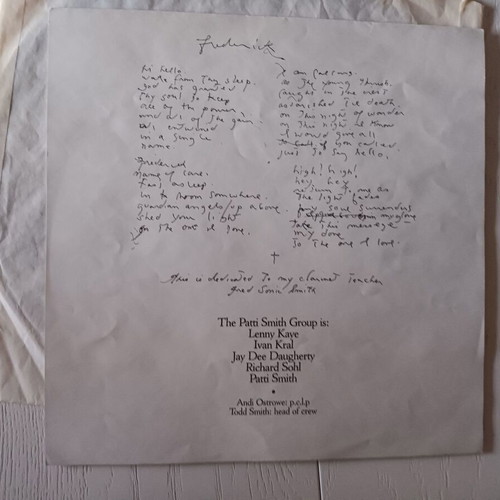 Frederick
hi hello
wake from thy sleep.
god has granted
thy soul to keep
all of the power
and all of the gain.
all entwined
in a single
name.
Frederick
name of care.
fast asleep
in a room somewhere.
guardian angels up above.
shed your light
on the one I love.
as the young thrush.
caught in the nest
astonished the death.
on this night of wonder
on this night I know
I would give all
just to say hello.
high! high!
hey hey
return to me as
the light fades
my soul surrenders
take this message
my dove
to the one I love.
this is dedicated to my clarinet teacher
Fred Sonic Smith
The Patti Smith Group is:
Lenny Kaye
Ivan Kral
Jay Dee Daugherty
Richard Sohl
Patti Smith
Andi Ostrowe: p.c.l.p
Todd Smith: head of crew